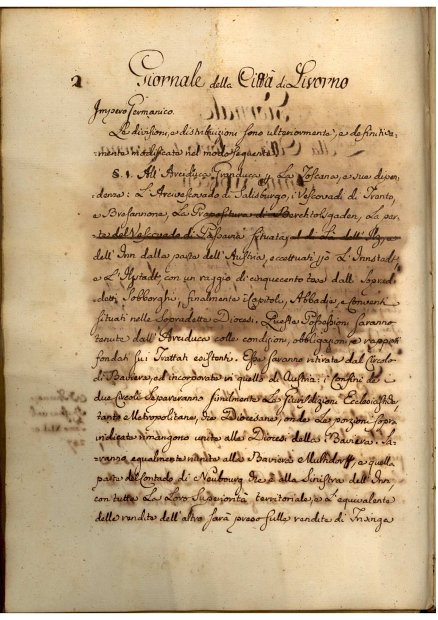 2 Giornale della Città di Livorno
Impero Germanico.
Le divisioni, e distribuzioni sono ulteriormente, e definitiva-
mente modificate nel modo seguente.
S. 1. All'Arciduca Granduca p. La Toscana, e sue dipen-
denze: L'Arcivescovado di Salisburgo, i Vescovadi di Trento,
e Bressannone, La Prepositura di Berchtolsgaden, La par-
te del Vescovado di Passavia situata, al di là dell'Ilz, e
dell'Inn dalla parte dell'Austria, eccettuati però L'Innstadt
e L'Ilzstadt, con un raggio di cinquecento tese dalli Sopred-
detti Sobborghi, finalmente i Capitoli, Abbadie, e Conventi
situati nelle Sopradette Diocesi. Queste Possessioni saranno
tenute dall'Arciduca colle condizioni, obbligazioni, e rapporti
fondati sui Trattati esistenti. Esse saranno ritirate dal Circolo
di Baviera, ed incorporate in quello di Austria: i Confini de'
due Circoli separeranno similmente Le Giurisdizioni Ecclesiastiche,
tanto Metropolitane, che Diocesane, onde Le porzioni sopra
indicate rimangono unite alle Diocesi della Baviera. Sa-
ranno egualmente riunite alla Baviera Muhldorff, e quella
parte del Contado di Neubourg che è alla Sinistra dell'Inn
con tutta La Loro Superiorità territoriale, e L'equivalente
delle rendite dell'altro sarà preso sulle rendite di Frisinga